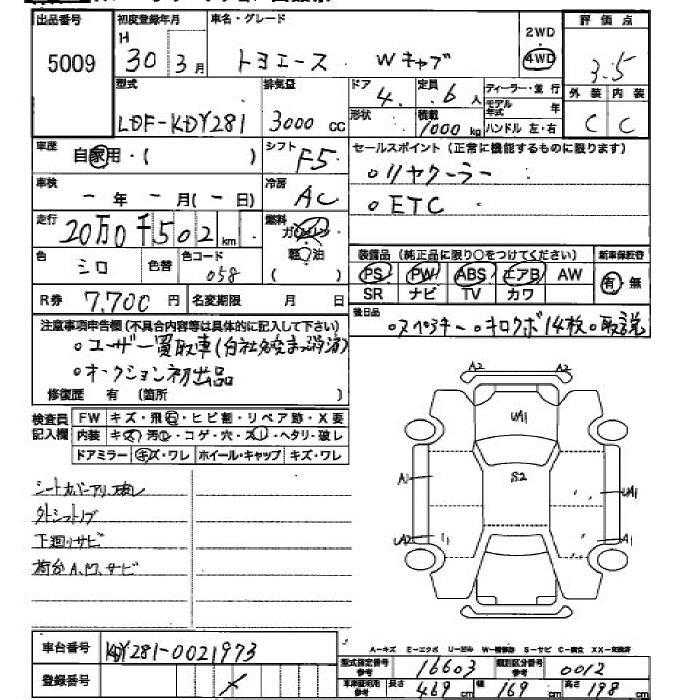 出品番号 初度登録年月 車名・グレード 2WD 評価点
5009 H 30 3月 トヨエース Wキャブ 4WD 3.5
型式 排気量 ドア 4 定員 6人 ディーラー・並行 外装 内装
LDF-KDY281 3000cc 形状 積載 1000kg モデル年式 年 ハンドル 左・右 C C
車歴 自家用・( ) シフト F5 セールスポイント(正常に機能するものに限ります)
車検 ー年ー月(ー日) 冷房 AC ○リヤクーラー
走行 20万0千502km 燃料 ガソリン ○ETC
色 シロ 色替 色コード 058 軽油 ( ) 装備品(純正品に限り○をつけてください) 新車保証書
PS PW ABS エアB AW 有・無
R券 7,700円 名変期限 月 日 SR ナビ TV カワ
注意事項申告欄(不具合内容等は具体的に記入して下さい) 後日品 ○スペアキー ○キロクボ 14枚 ○取説
○ユーザー買取車(自社名変まっ消済)
○オークション初出品
修復歴 有(箇所 )
検査員記入欄 FW キズ・飛石・ヒビ割・リペア跡・X要
内装 キズ・汚レ・コゲ・穴・スレ・ヘタリ・破レ
ドアミラー キズ・ワレ ホイール・キャップ キズ・ワレ
シートカバーアリ、破レ
外シフトノブ
下廻りサビ
荷台A.W.サビ
A2 A2
UA1
A1 S2 UA1
UA2 A1
A-キズ E-エクボ U-凹み W-補修跡 S-サビ C-腐食 XX-交換済
車台番号 KDY281-0021973
型式指定番号 参考 16603 類別区分番号 参考 0012
登録番号
車庫証明用 参考 長さ 469cm 幅 169cm 高さ 198cm